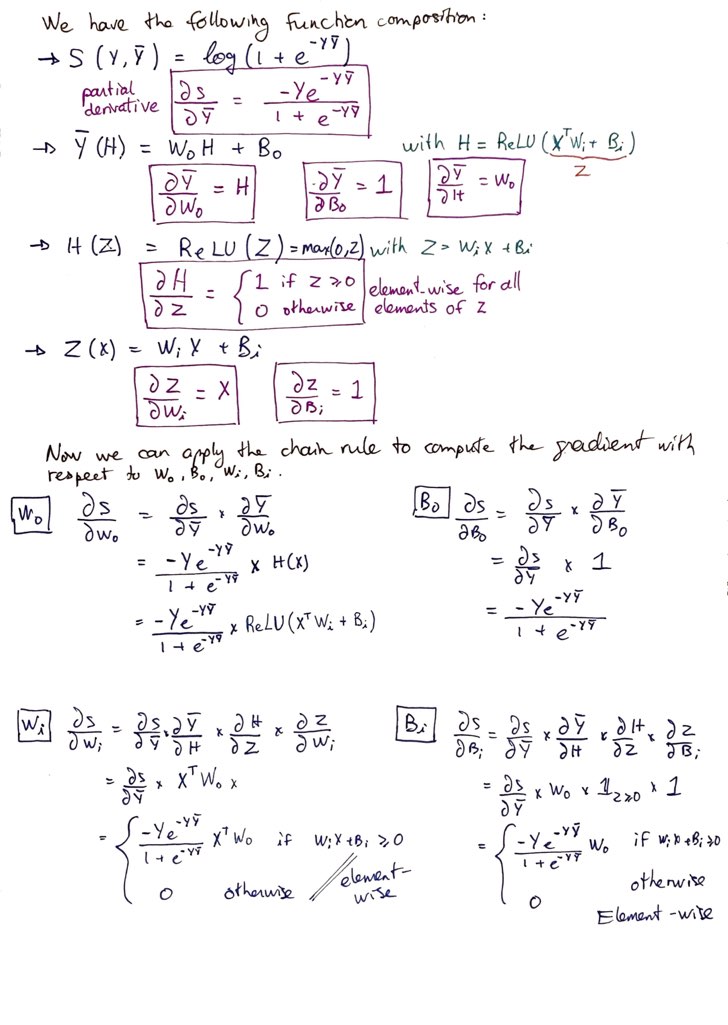 We have the following function composition:
→ S (Y, Ȳ) = log(1 + e^{-YȲ})
partial derivative ∂S/∂Ȳ = -Ye^{-YȲ} / 1 + e^{-YȲ}
→ Ȳ(H) = W₀H + B₀ with H = ReLU(XᵀWᵢ + Bᵢ)
Z
∂Ȳ/∂W₀ = H ∂Ȳ/∂B₀ = 1 ∂Ȳ/∂H = W₀
→ H(Z) = ReLU(Z) = max(0,Z) with Z = WᵢX + Bᵢ
∂H/∂Z = { 1 if Z ≥ 0 element-wise for all
0 otherwise elements of Z
→ Z(X) = WᵢX + Bᵢ
∂Z/∂Wᵢ = X ∂Z/∂Bᵢ = 1
Now we can apply the chain rule to compute the gradient with
respect to W₀, B₀, Wᵢ, Bᵢ.
W₀ ∂S/∂W₀ = ∂S/∂Ȳ × ∂Ȳ/∂W₀
= -Ye^{-YȲ} / 1 + e^{-YȲ} × H(X)
= -Ye^{-YȲ} / 1 + e^{-YȲ} × ReLU(XᵀWᵢ + Bᵢ)
B₀ ∂S/∂B₀ = ∂S/∂Ȳ × ∂Ȳ/∂B₀
= ∂S/∂Ȳ × 1
= -Ye^{-YȲ} / 1 + e^{-YȲ}
Wᵢ ∂S/∂Wᵢ = ∂S/∂Ȳ × ∂Ȳ/∂H × ∂H/∂Z × ∂Z/∂Wᵢ
= ∂S/∂Ȳ × XᵀW₀ ×
= { -Ye^{-YȲ} / 1 + e^{-YȲ} XᵀW₀ if WᵢX + Bᵢ ≥ 0
0 otherwise // element-wise
Bᵢ ∂S/∂Bᵢ = ∂S/∂Ȳ × ∂Ȳ/∂H × ∂H/∂Z × ∂Z/∂Bᵢ
= ∂S/∂Ȳ × W₀ × 𝟙_{Z≥0} × 1
= { -Ye^{-YȲ} / 1 + e^{-YȲ} W₀ if WᵢX + Bᵢ ≥ 0
0 otherwise
Element-wise